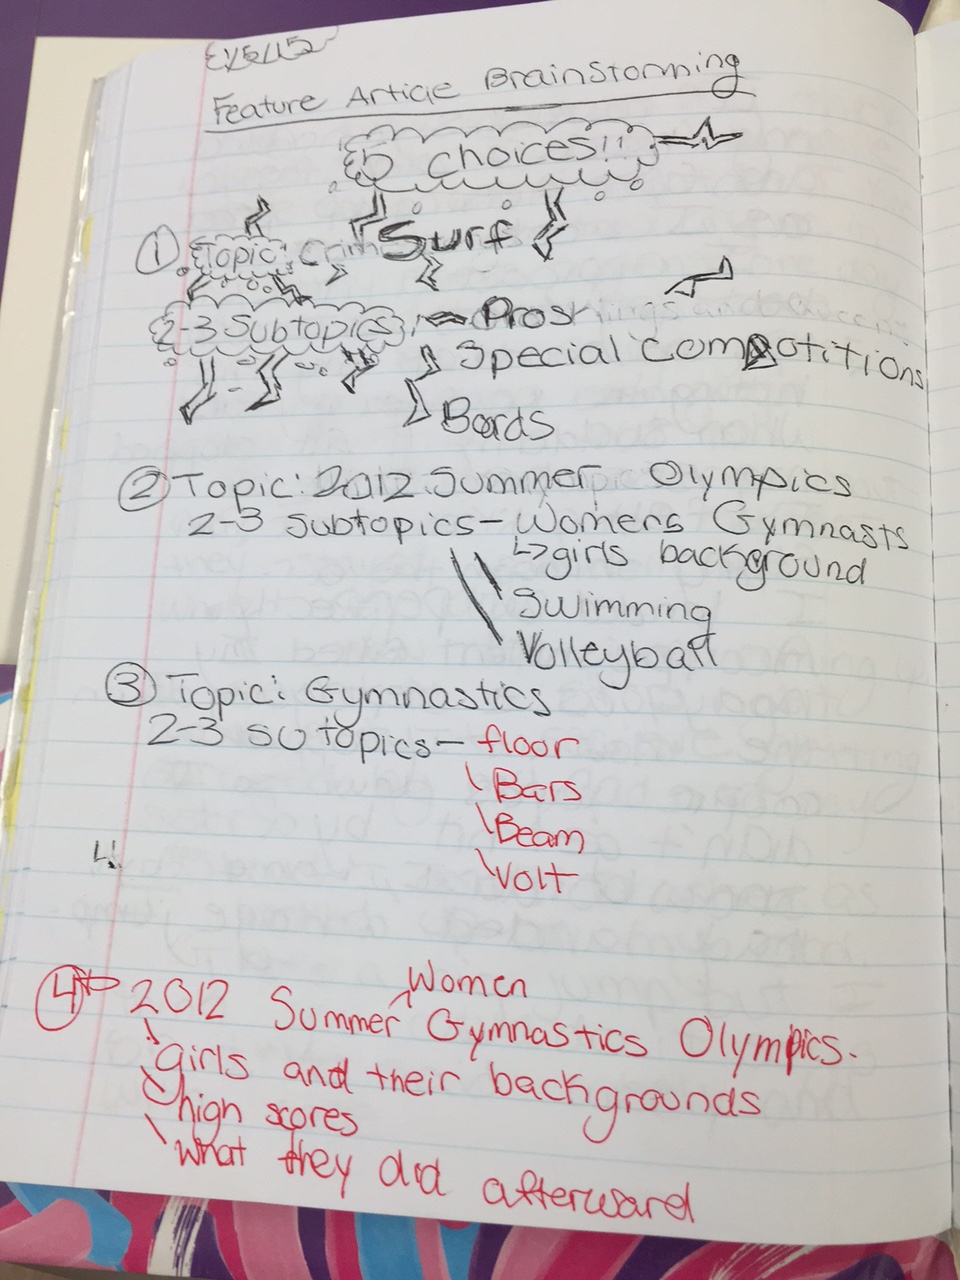 Feature Article Brainstorming
5 choices!!
① Topic: Surf
2-3 Subtopics - Pros
Special Compotitions
Bords
② Topic: 2012 Summer Olympics
2-3 subtopics - Womens Gymnasts
↳ girls background
Swimming
Volleyball
③ Topic: Gymnastics
2-3 sutopics - floor
Bars
Beam
Volt
4.
④ 2012 Summer ^Women Gymnastics Olympics.
girls and their backgrounds
high scores
What they did afterward